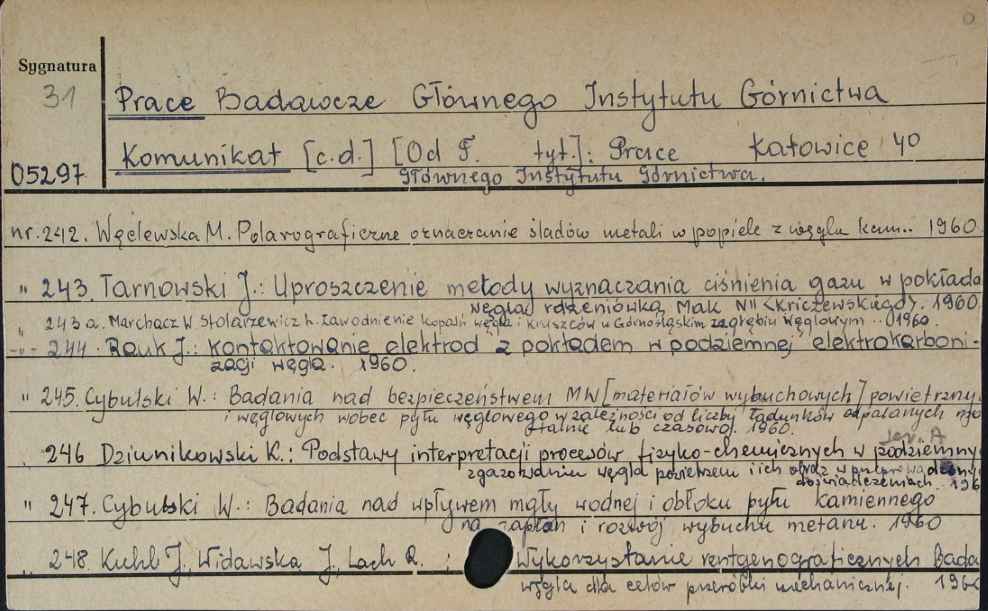 Sygnatura
31
Prace Badawcze Głównego Instytutu Górnictwa
Komunikat [c.d.] [Od F. tyt.]: Prace Katowice 40
05297
Głównego Instytutu Górnictwa.
nr. 242. Węclewska M. Polarograficzne oznaczanie śladów metali w popiele z węgla kam.. 1960
" 243. Tarnowski J.: Uproszczenie metody wyznaczania ciśnienia gazu w pokłada
węgla rdzeniówką Mak N" <Kriczewskiego>. 1960
" 243 a. Marchacz W Stolarzewicz h. Zawodnienie kopalń węgla i kruszców w Górnośląskim zagłębiu węglowym .. 1960.
-"- 244. Rauk J.: Kontaktowanie elektrod z pokładem w podziemnej elektrokarboni-
zacji węgla. 1960.
" 245. Cybulski W.: Badania nad bezpieczeństwem MW [materiałów wybuchowych] powietrzny
i węglowych wobec pyłu węglowego w zależności od liczby ładunków odpalanych
lub czasowo). 1960.
" 246 Dziunikowski K.: Podstawy interpretacji procesów fizyko-chemicznych w podziemny
zgazowaniu węgla powietrzem i ich
doświadczeniach. 196
" 247. Cybulski W.: Badania nad wpływem mgły wodnej i obłoku pyłu kamiennego
na zapłon i rozwój wybuchu metanu. 1960
" 248. Kuhl J., Widawska J., Lach R. : Wykorzystanie rentgenograficznych Bada
węgla dla celów przeróbki mechanicznej. 1960